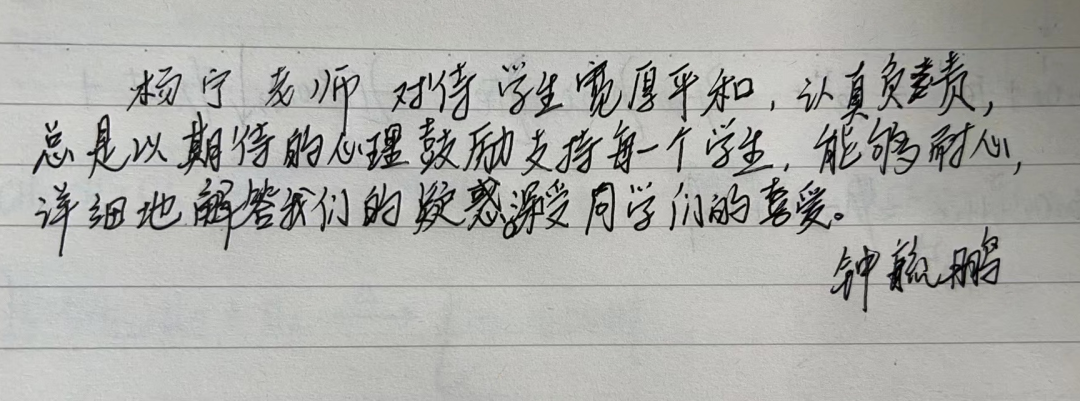 杨宁老师对待学生宽厚平和，认真负责，
总是以期待的心理鼓励支持每一个学生，能够耐心，
详细地解答我们的疑惑。深受同学们的喜爱。
钟毓鹏